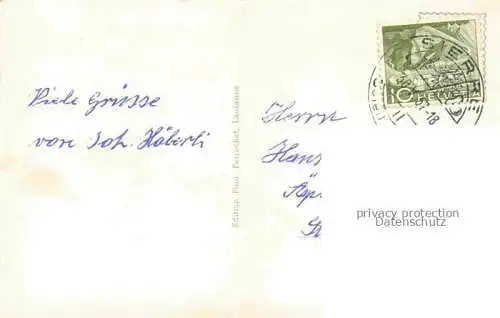 Viele Grüsse
von Joh. Häberli
Herrn
Hans
Ap.
St
Edition Paul Perrochet, Lausanne
SIERRE
-18
10
privacy protection
Datenschutz